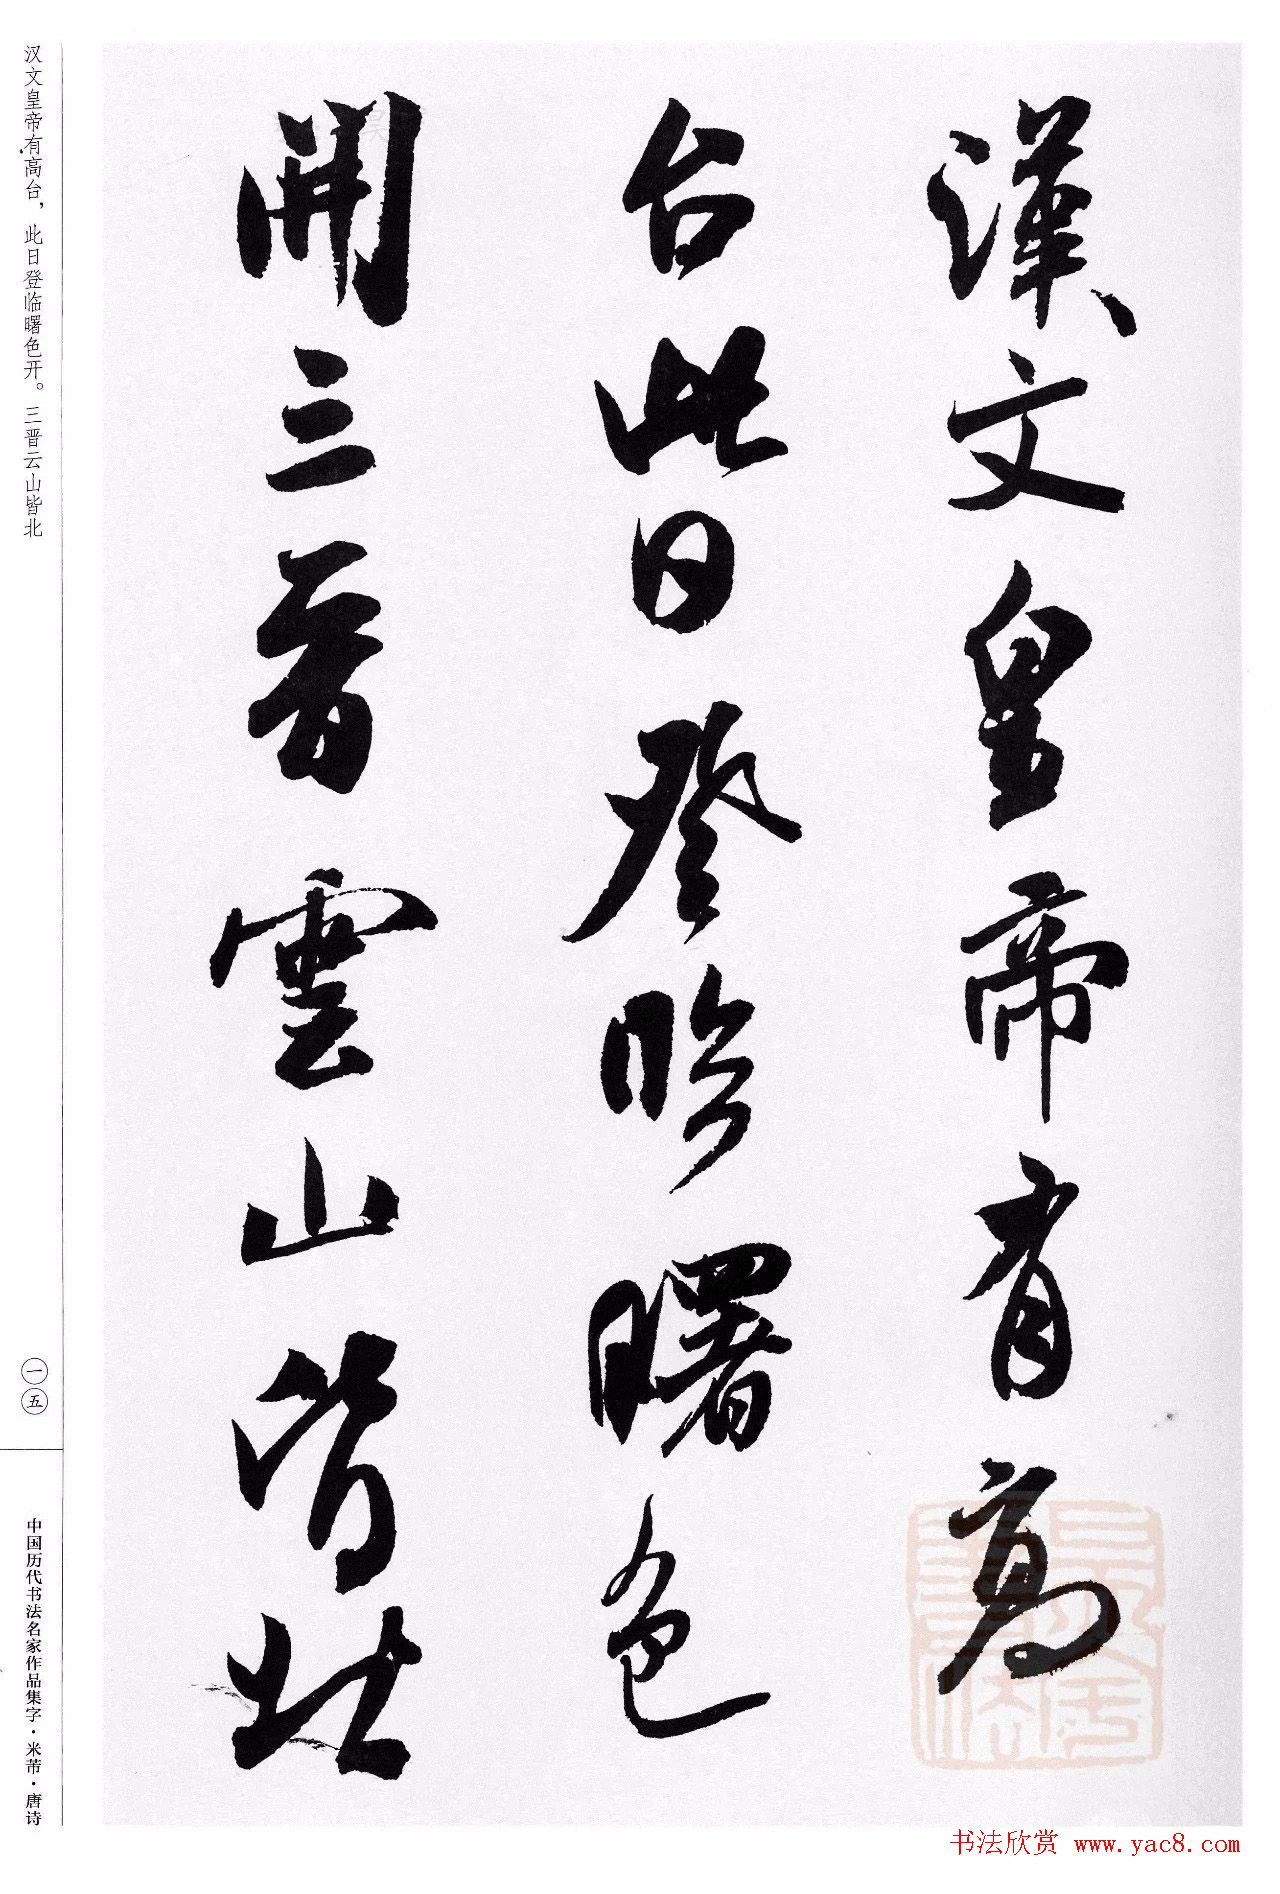 漢文皇帝有高
台此日登臨曙色
開三晉雲山皆北
汉文皇帝有高台，此日登临曙色开。三晋云山皆北
一五
中国历代书法名家作品集字·米芾·唐诗
书法欣赏 www.yac8.com